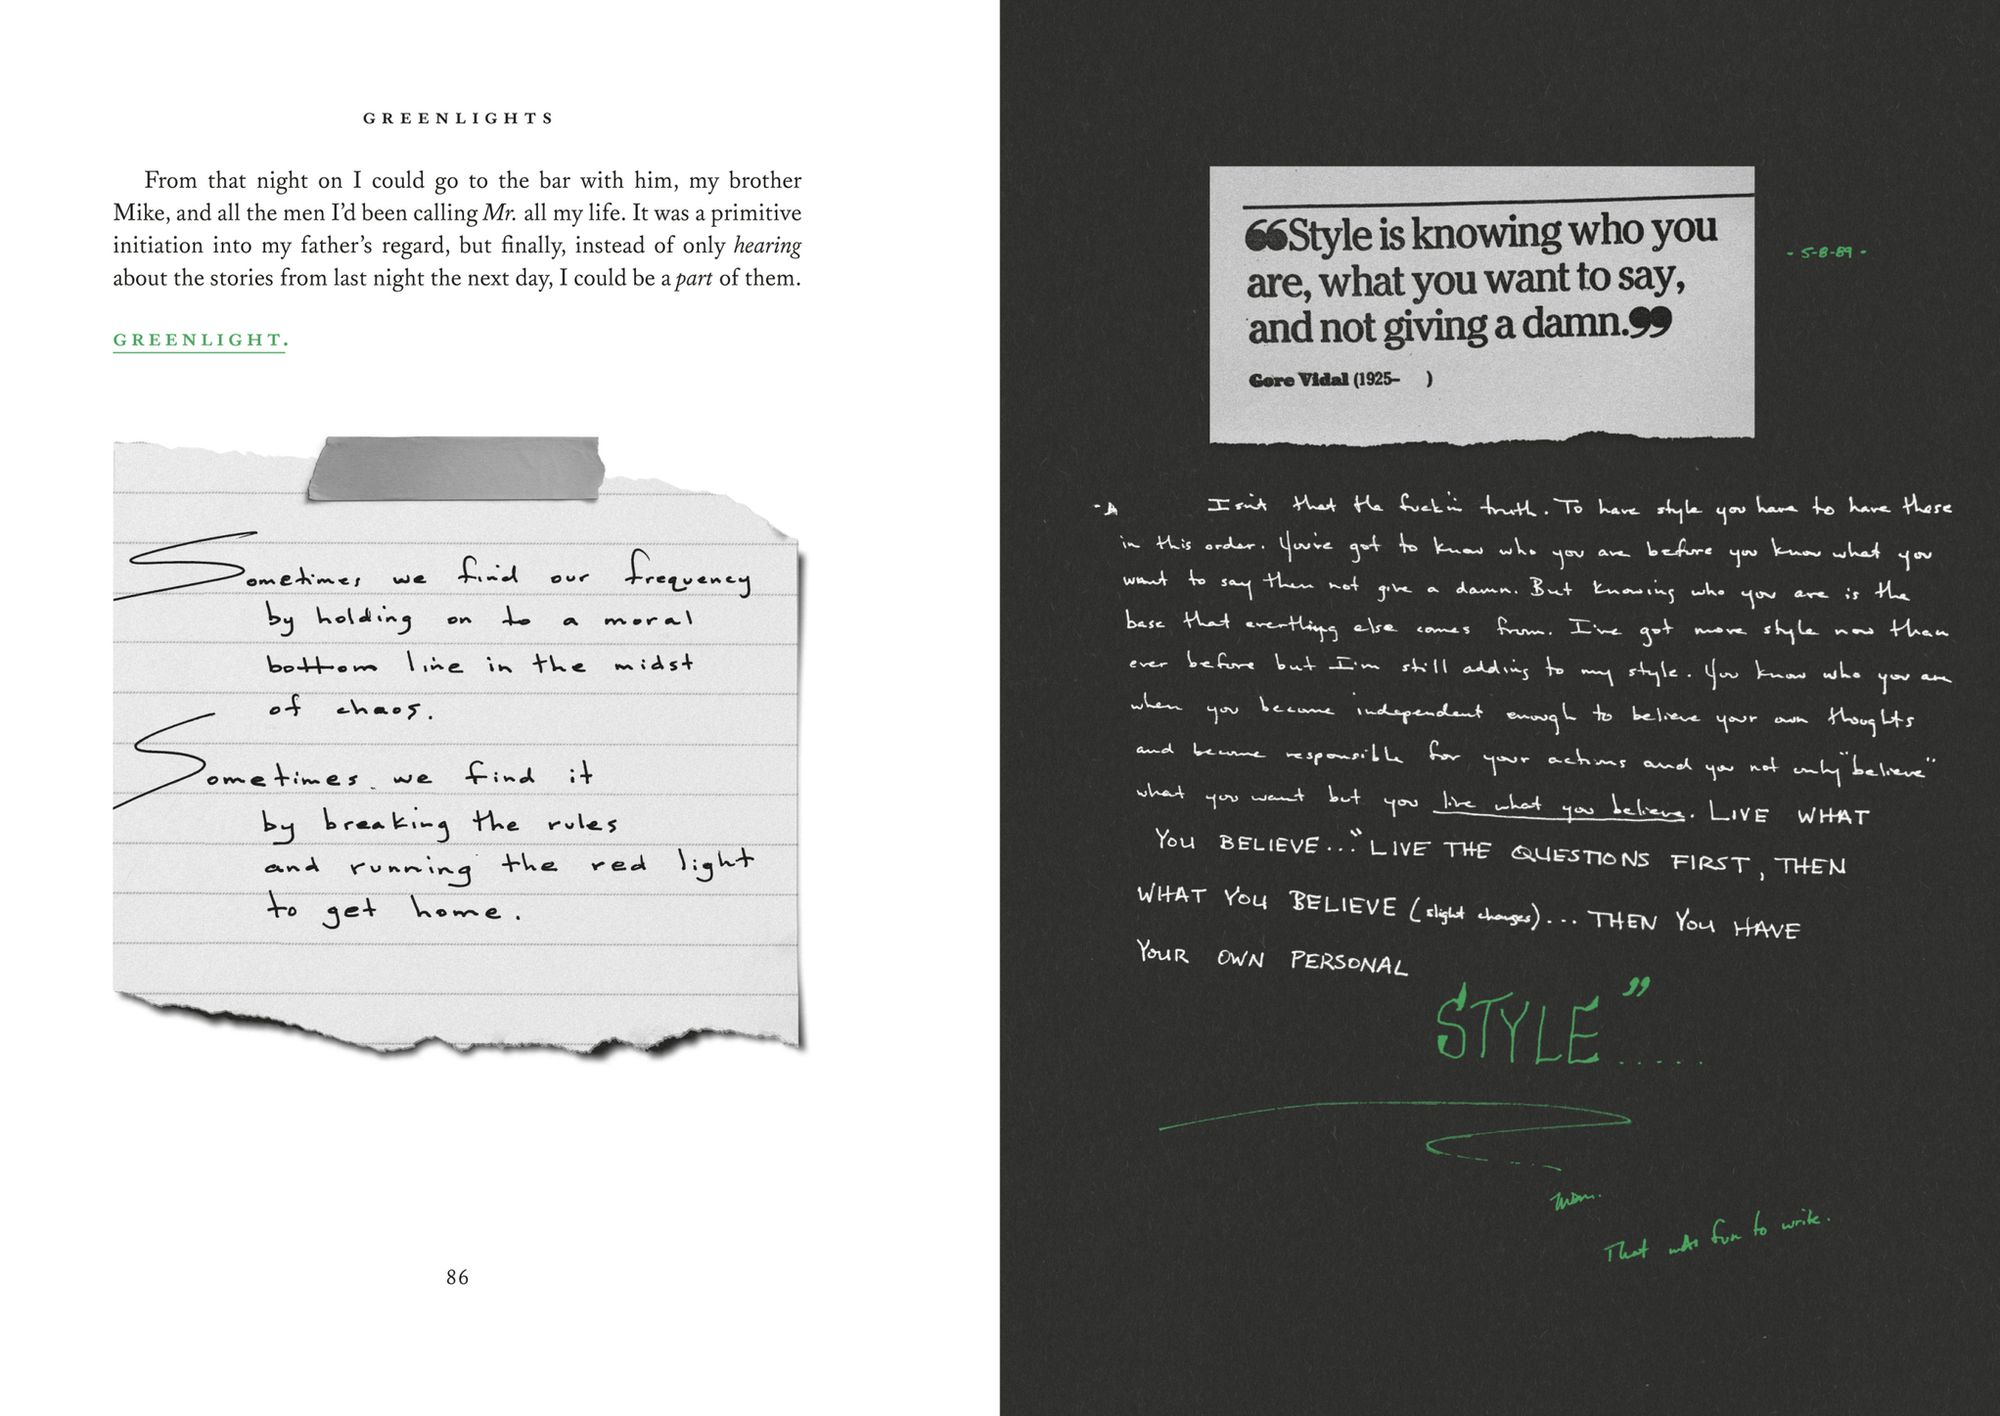 GREENLIGHTS
From that night on I could go to the bar with him, my brother
Mike, and all the men I’d been calling Mr. all my life. It was a primitive
initiation into my father’s regard, but finally, instead of only hearing
about the stories from last night the next day, I could be a part of them.
GREENLIGHT.
Sometimes we find our frequency
by holding on to a moral
bottom line in the midst
of chaos.
Sometimes we find it
by breaking the rules
and running the red light
to get home.
86
“Style is knowing who you
are, what you want to say,
and not giving a damn.”
Gore Vidal (1925– )
- 5-8-89 -
Isn't that the fuckin truth. To have style you have to have these
in this order. You've got to know who you are before you know what you
want to say then not give a damn. But knowing who you are is the
base that everthing else comes from. I've got more style now than
ever before but I'm still adding to my style. You know who you are
when you become independent enough to believe your own thoughts
and become responsible for your actions and you not only "believe"
what you want but you live what you believe. LIVE WHAT
YOU BELIEVE... "LIVE THE QUESTIONS FIRST, THEN
WHAT YOU BELIEVE (slight changes)... THEN YOU HAVE
YOUR OWN PERSONAL
STYLE".....
That was fun to write.